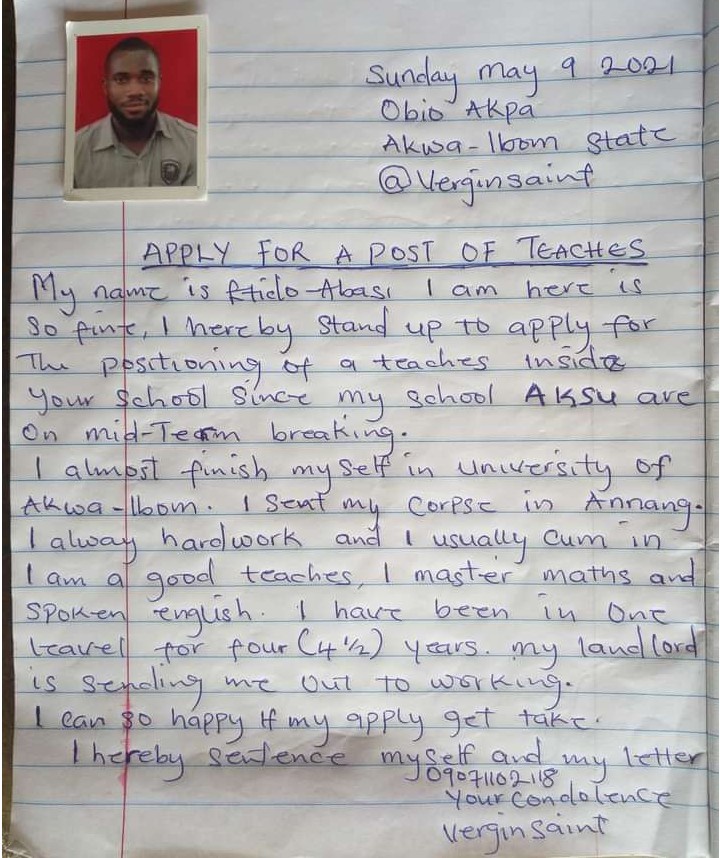 Sunday may 9 2021
Obio Akpa
Akwa-Ibom State
@Verginsaint
APPLY FOR A POST OF TEACHES
My name is Etido-Abasi I am here is
So fine, I hereby Stand up to apply for
The positioning of a teaches inside
your School Since my school AKSU are
On mid-Team breaking.
I almost finish my self in university of
Akwa-Ibom. I Seat my Corpse in Annang.
I alway hardwork and I usually Cum in
I am a good teaches, I master maths and
Spoken english. I have been in One
leavel for four (4 1/2) years. my landlord
is Sending me out to working.
I can so happy If my apply get take.
I hereby Sentence myself and my letter
09071102118
Your Condolence
Vergin Saint